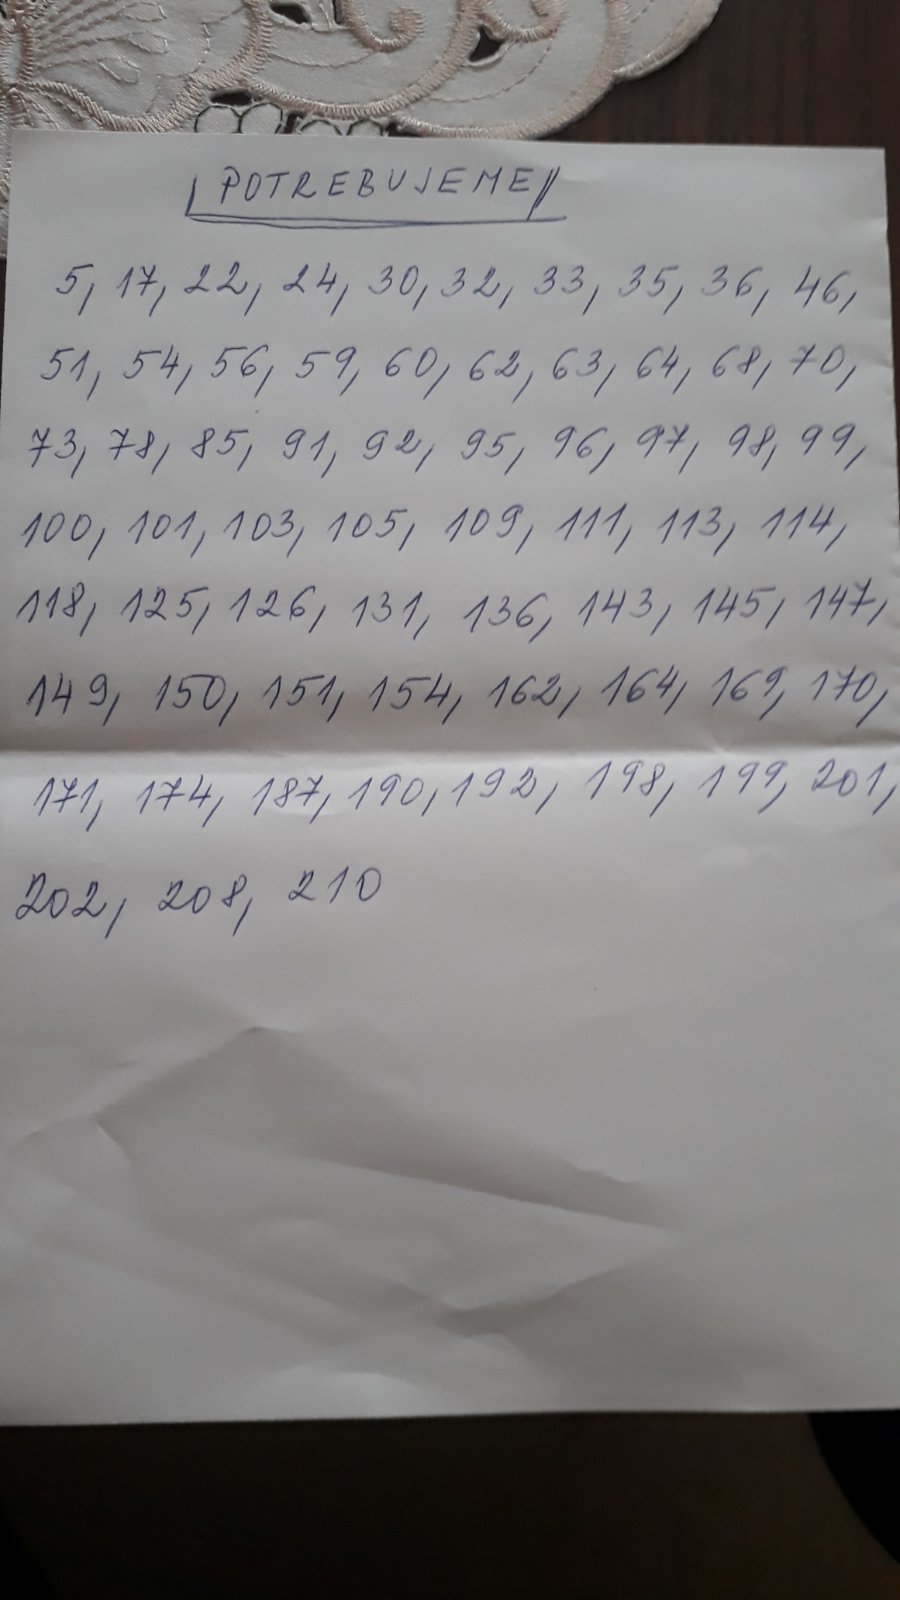 POTREBUJEME
5, 17, 22, 24, 30, 32, 33, 35, 36, 46,
51, 54, 56, 59, 60, 62, 63, 64, 68, 70,
73, 78, 85, 91, 92, 95, 96, 97, 98, 99,
100, 101, 103, 105, 109, 111, 113, 114,
118, 125, 126, 131, 136, 143, 145, 147,
149, 150, 151, 154, 162, 164, 169, 170,
171, 174, 187, 190, 192, 198, 199, 201,
202, 208, 210